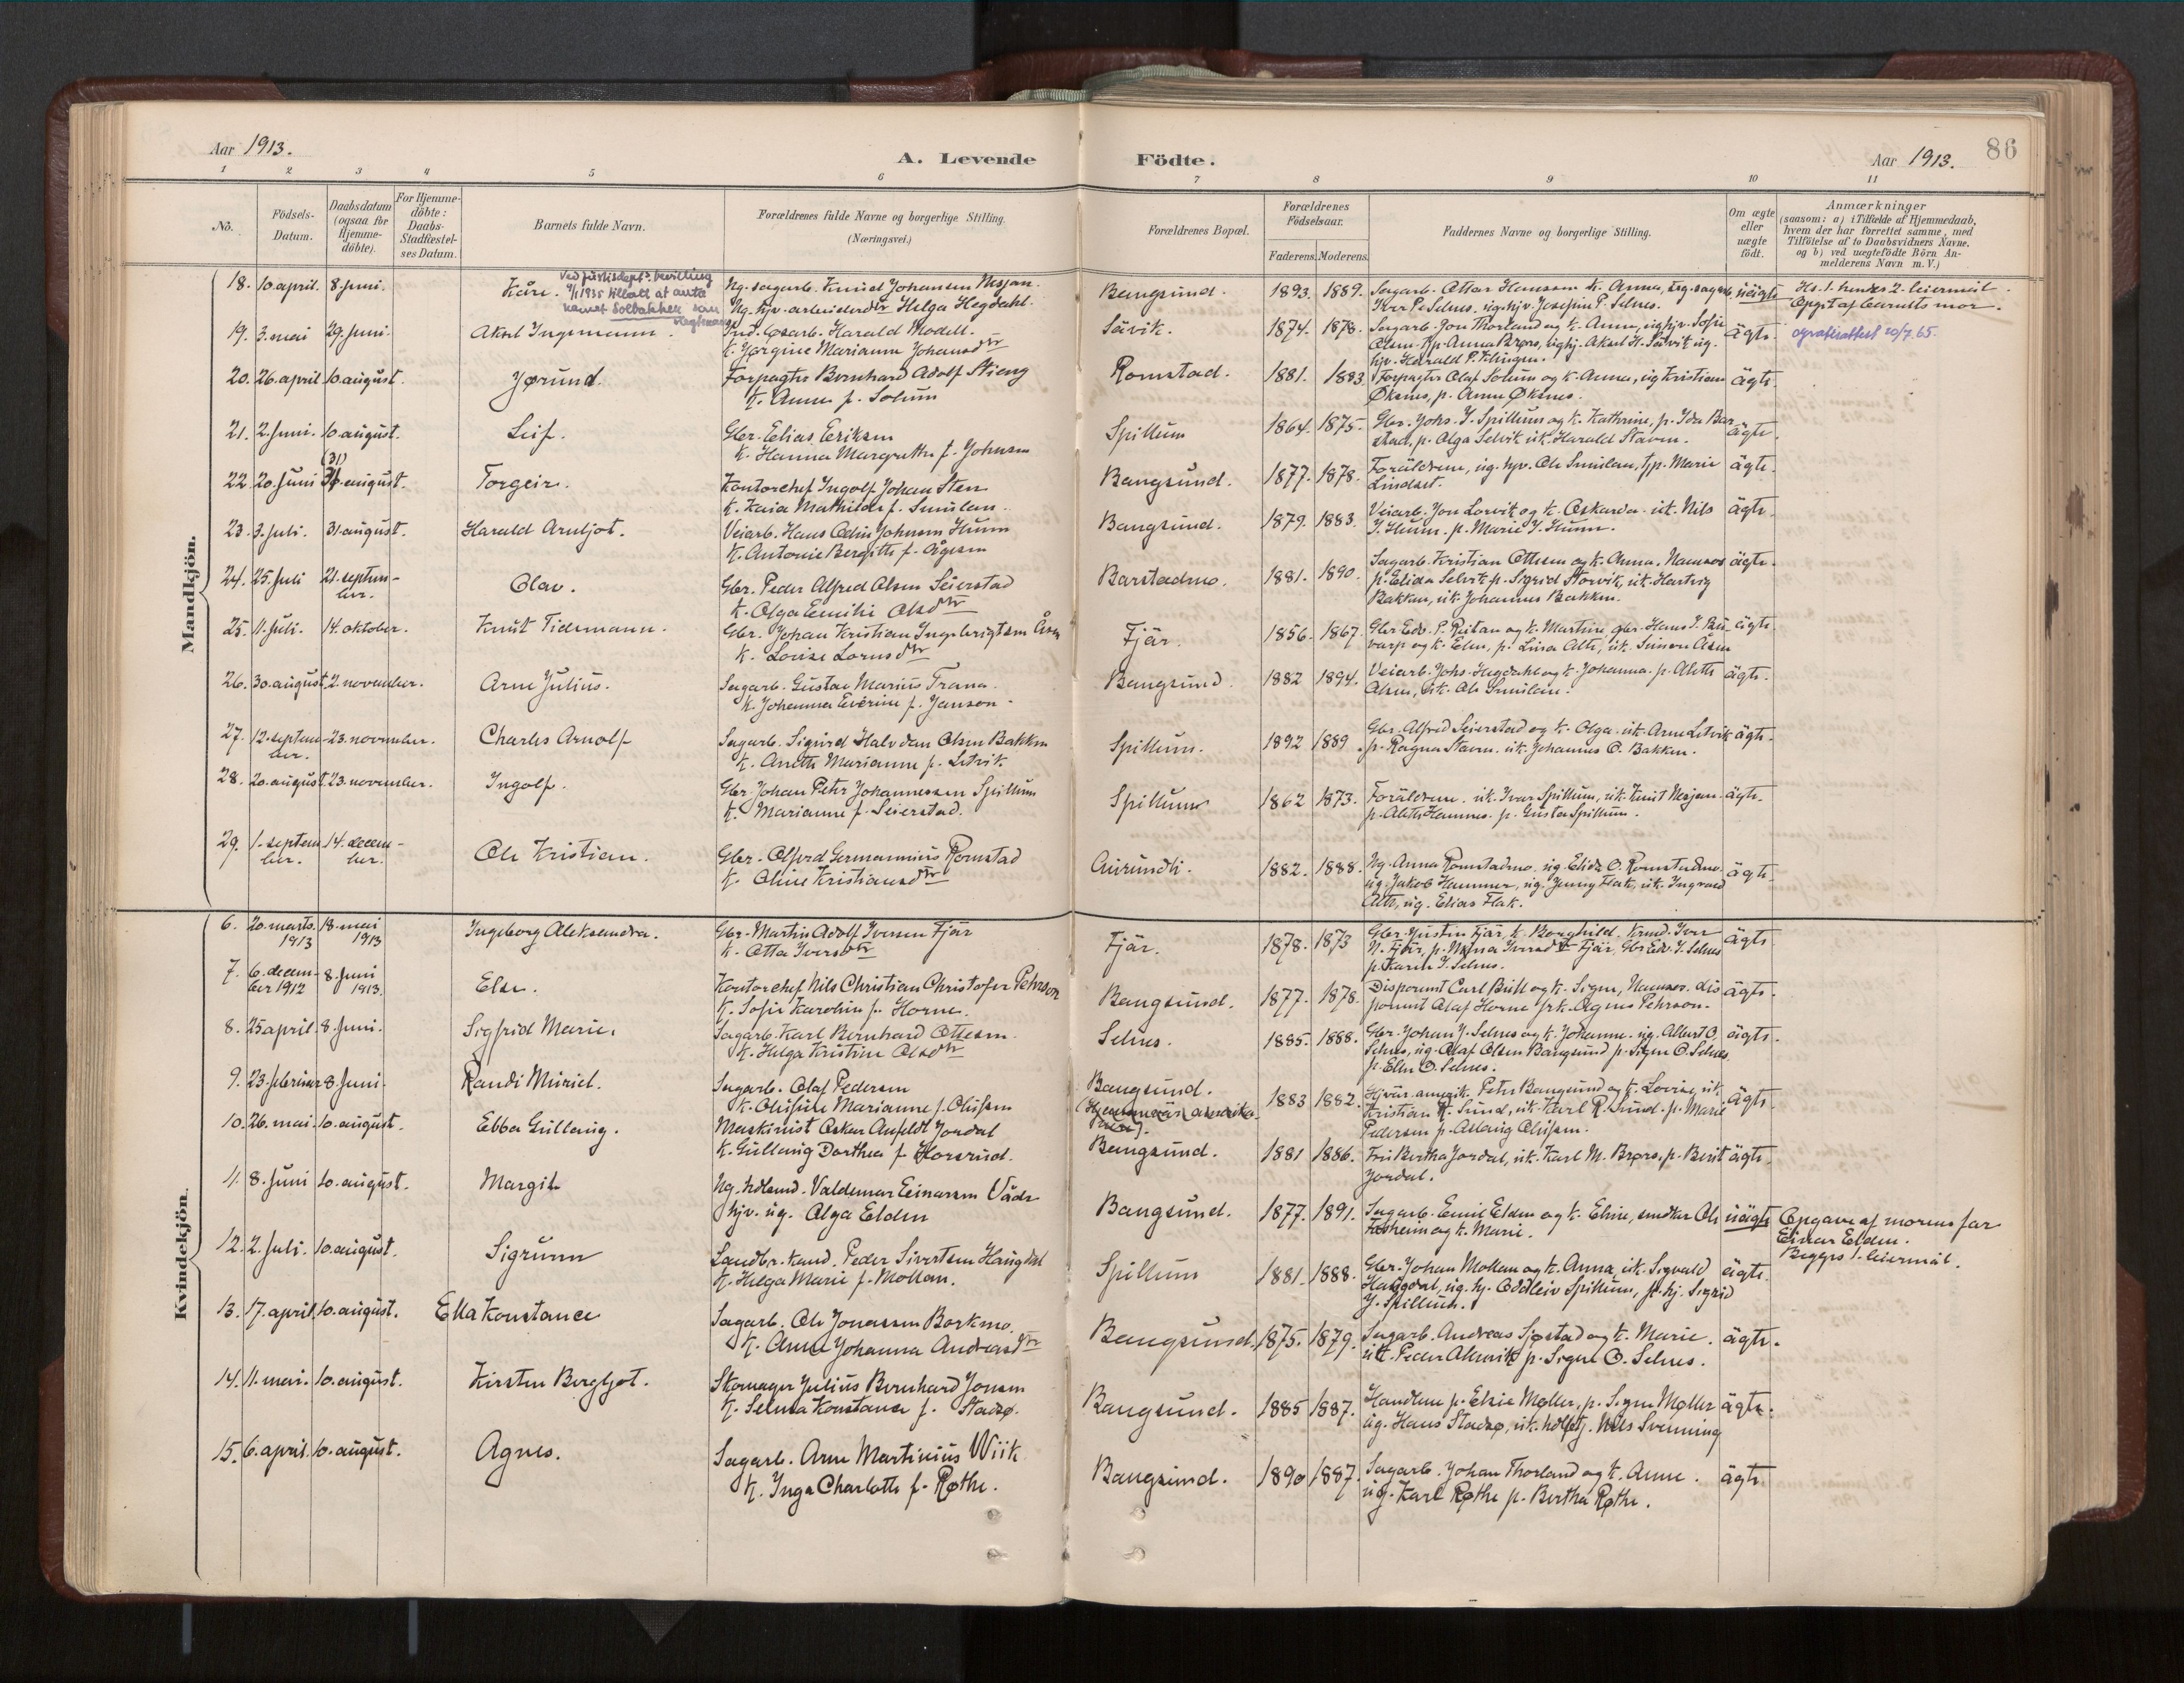 Aar 1913.
A. Levende Födte.
Aar 1913.
86
1 2 3 4 5 6 7 8 9 10 11
No.
Födsels-Datum.
Daabsdatum (ogsaa for Hjemmedöbte).
For Hjemmedöbte: Daabs-Stadfæstelses Datum.
Barnets fulde Navn.
Forældrenes fulde Navne og borgerlige Stilling. (Næringsvei.)
Forældrenes Bopæl.
Forældrenes Födselsaar.
Faderens. Moderens.
Faddernes Navne og borgerlige Stilling.
Om ægte eller uægte födt.
Anmærkninger
(saasom: a) i Tilfælde af Hjemmedaab, hvem der har forrettet samme, med Tilföielse af to Daabsvidners Navne, og b) ved uægtefödte Börn Anmelderens Navn m. V.)
Mandkjön.
18. 10. april. 8. juni. Kåre.
Ved justisdept's bevilling
9/1 1935 tillatt at anta
navnet Solbakken som
slegtsnavn
Ug. sagarb. Knud Johansen Nesjan.
Ug. hjv. arbeiderdtr Helga Hegdahl.
Bangsund. 1893. 1889.
Sagarb. Ottar Hanssen k. Anna, ug. sagarb.
Iver P. Selnes. ug. hjv. Josefin P. Selnes.
uägte
Hs. 1. hendes 2. leiermål.
Opgit af barnets mor.
19. 3. mai 29. juni. Aksel Ingemann.
Ind. løsarb. Harald Modell.
k. Jørgine Marianne Johansdtr
Sävik. 1874. 1878.
Sagarb. Jon Thorland og k. Anna, ug hjv. Sofie
Olsen. tjp. Anna Brørs, ug hj. Aksel H. Sävik ug.
hjv. Harald P. Klingen.
ägte.
attest 20/7. 65.
20. 26. april 10. august. Jørund.
Forpagter Bernhard Adolf Skieng
k. Anna f. Solum
Romstad. 1881. 1883
Forpagter Olaf Solum og k. Anna, ug Kristian
Øksnes, p. Anna Øksnes.
ägte.
21. 2. juni. 10. august. Leif.
Gbr. Elias Eriksen
k. Hanna Margrethe f. Johnsen
Spillum 1864. 1875.
Gbr. Johs. J. Spillum og k. Kathrine, p. Ida Bar
stad, p. Olga Selvik uk. Harald Staven.
ägte.
22. 20. juni (31) 31. august. Torgeir.
Kontorchef Ingolf Johan Sten
k. Kaia Mathilde f. Smilau.
Bangsund. 1877. 1878.
Foräldrene, ug. hjv. Ole Smilau, tjp. Marie
Lindset.
ägte.
23. 3. juli. 31. august. Harald Arnljot.
Veiarb. Hans Odin Johnsen Hunn
k. Antonie Bergitte f. Ågesen
Bangsund. 1879. 1883.
Veiarb. Jon Lorvik og k. Oskarda. uk. Nils
J. Hunn. p. Marie J. Hunn.
ägte.
24. 25. juli 21. septem-
ber.
Olav.
Gbr. Peder Alfred Olsen Seierstad
k. Olga Emilie Olsdtr
Barstadmo. 1881. 1890.
Sagarb. Kristian Ottesen og k. Anna. Namsos
p. Elida Selvik p. Sigrid Storvik, uk. Hartvig
Bakken, uk. Johannes Bakken.
ägte.
25. 11. juli. 14. oktober. Knut Tidemann.
Gbr. Johan Kristian Ingebrigtsen Åsen
k. Lovise Lornsdtr
Fjär. 1856. 1867.
Gbr Edv. P. Reitan og k. Martine, gbr. Hans J.
varp og k. Elen, p. Lina Alte, uk. Simon Åsen
ägte.
26. 30. august 2. november. Arne Julius.
Sagarb. Gustav Marius Trana.
k. Johanna Everine f. Janson.
Bangsund. 1882 1894.
Veiarb. Johs. Hegdahl og k. Johanna. p. Alette
Olsen, uk. Ole Smilau.
ägte.
27. 12. septem-
ber.
23. november. Charles Arnolf
Sagarb. Sigurd Halvdan Olsen Bakken
k. Anette Marianne f. Letvik.
Spillum. 1892 1889
Gbr. Alfred Seierstad og k. Olga. uk. Arne Letvik
p. Ragna Staven. uk. Johannes O. Bakken.
ägte.
28. 20. august 23. november. Ingolf.
Gbr. Johan Peter Johannessen Spillum
k. Marianne f. Seierstad.
Spillum 1862 1873.
Foräldrene. uk. Ivar Spillum, uk. Knut Nesjan.
p. Alette Hammer. p. Gusta Spillum.
ägte.
29. 1. septem
ber.
14. decem-
ber.
Ole Kristian.
Gbr. Alfred Germannius Romstad
k. Oline Kristiansdtr
Aurundli. 1882. 1888.
Ug. Anna Romstadmo. ug. Elida O. Romstadmo.
ug. Jakob Hammer, ug. Jenny Flak, uk. Ingvald
Alte, ug. Elias Flak.
ägte.
Kvindekjön.
6. 20. marts. 1913 18. mai 1913 Ingeborg Aleksandra.
Gbr. Martin Adolf Iversen Fjär
k. Otta Iversdtr
Fjär. 1878. 1873
Gbr. Justin Fjär, k. Borghild. Knud. Iver
N. Fjär, p. Iversdtr Fjär, Gbr Edv. J. Selnes
p. Karen J. Selnes.
ägte
7. 6. decem-
ber 1912
8. juni 1913. Else.
Kontorchef Nils Christian Christofer Pehrson
k. Sofie Karoline f. Horne.
Bangsund. 1877. 1878.
Disponent Carl Bull og k. Signe, Namsos. dis
ponent Olaf Horne frk. Agnes Pehrson.
ägte.
8. 25 april. 8. juni. Sigfrid Marie.
Sagarb. Karl Bernhard Ottesen.
k. Helga Kristine Olsdtr
Selnes. 1885. 1888.
Gbr. Johan J. Selnes og k. Johanne. ug. Albert O.
Selnes, ug. Olaf Olsen Bangsund p. Signe O. Selnes
p. Ellen O. Selnes.
ägte.
9. 23. februar 8. juni. Randi Muriel.
Sagarb. Olaf Pedersen
k. Olufine Marianne f. Olufsen
Bangsund.
(Hjemmevär. amerika-
ner).
1883 1882.
Hjvär. amerik. Peter Bangsund og k. Lovise, uk.
Kristian R. Sund, uk. Karl R. Sund. p. Marie
Pedersen p. Aslaug Olufsen.
ägte.
10. 26. mai. 10. august. Ebba Gullaug.
Maskinist Oskar Anfeldt Jordal
k. Gullaug Dorthea f. Korsrud.
Bangsund. 1881 1886.
Fru Bertha Jordal, uk. Karl M. Brørs, p. Berit
Jordal.
ägte.
11. 8. juni 10. august. Margit
Ug. hdlsmd. Valdemar Einarsen Våde
hjv. ug. Olga Elden
Bangsund. 1877. 1891.
Sagarb. Emil Elden og k. Eline, snedker Ole
heim og k. Marie.
uägte
Opgave af morens far
Einar Elden.
Begges 1. leiermål.
12. 2. juli. 10. august. Sigrunn
Landbr. kand. Peder Sivertsen Haugdal
k. Helga Marie f. Mollan.
Spillum 1881. 1888.
Gbr. Johan Mollan og k. Anna, uk. Sigvald
Haugdal, ug. hj. Oddleiv Spillum, p. hj. Sigrid
J. Spillum.
ägte.
13. 17. april. 10. august. Ella Konstance
Sagarb. Ole Jonassen Borkmo
k. Anna Johanna Andreasdtr
Bangsund. 1875. 1879.
Sagarb. Andreas Sjøstad og k. Marie.
uk. Peder Almvik p. Signe O. Selnes.
ägte.
14. 11. mai. 10. august. Kirsten Bergljot.
Skomager Julius Bernhard Jonsen
k. Selma Konstance f. Stadsø.
Bangsund. 1885 1887.
Handlem p. Elsie Møller, p. Signe Møller
ug. Hans Stadsø, uk. hdlbetj. Nils Svenning
ägte.
15. 6. april. 10. august. Agnes.
Sagarb. Arne Martinius Wiik
k. Inga Charlotte f. Røthe.
Bangsund. 1890 1887.
Sagarb. Johan Thorland og k. Anne.
ug. Karl Røthe p. Bertha Røthe.
ägte.